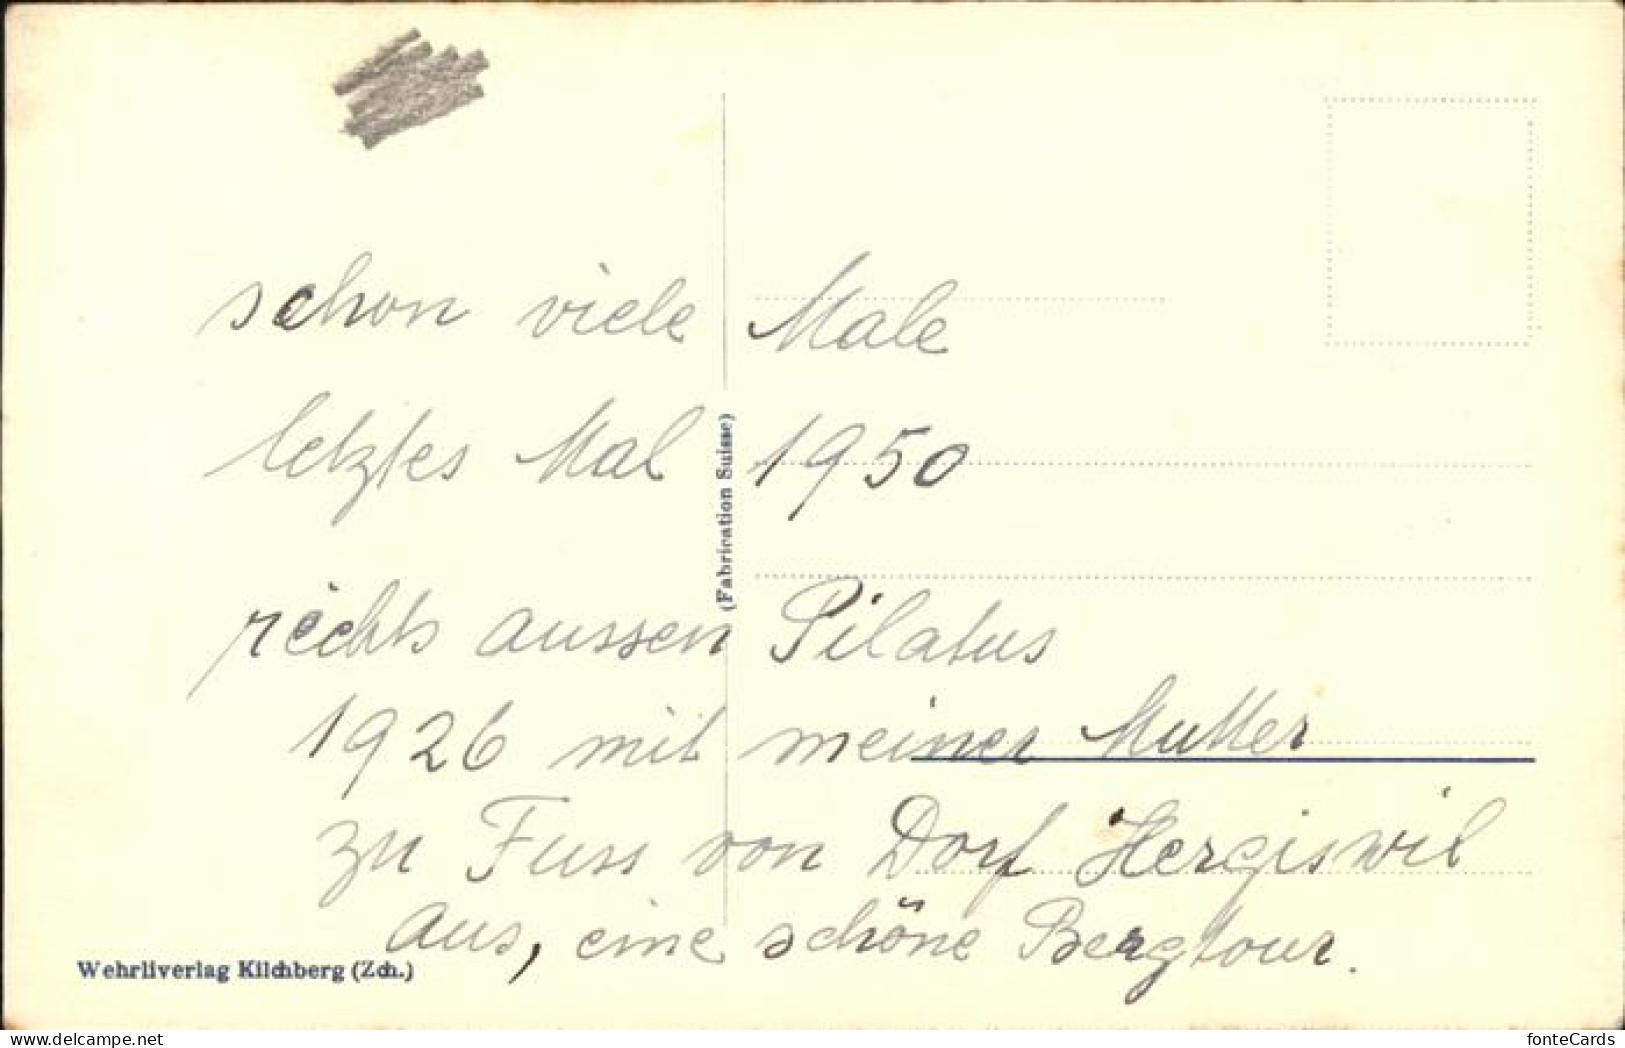 schon viele Male
letztes Mal 1950
rechts aussen Pilatus
1926 mit meiner Mutter
zu Fuss von Dorf Hergiswil
aus, eine schöne Bergtour.
(Fabrication Suisse)
Wehrliverlag Kilchberg (Zch.)
fonteCards